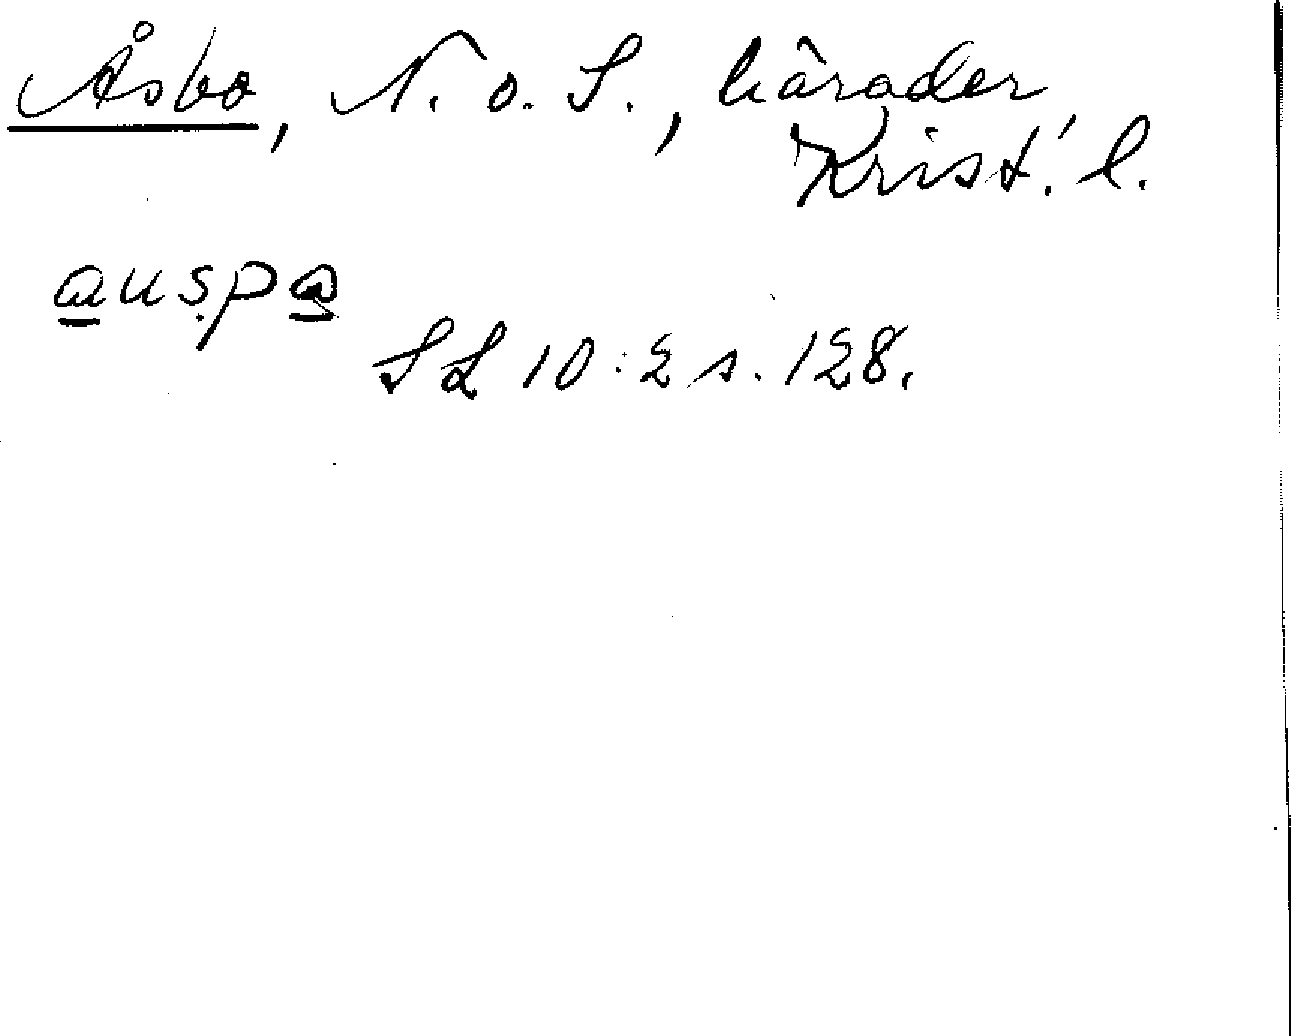 Åsbo, N. o. S., härader
Krist. l.
auspa
SL 10:2 s. 128.